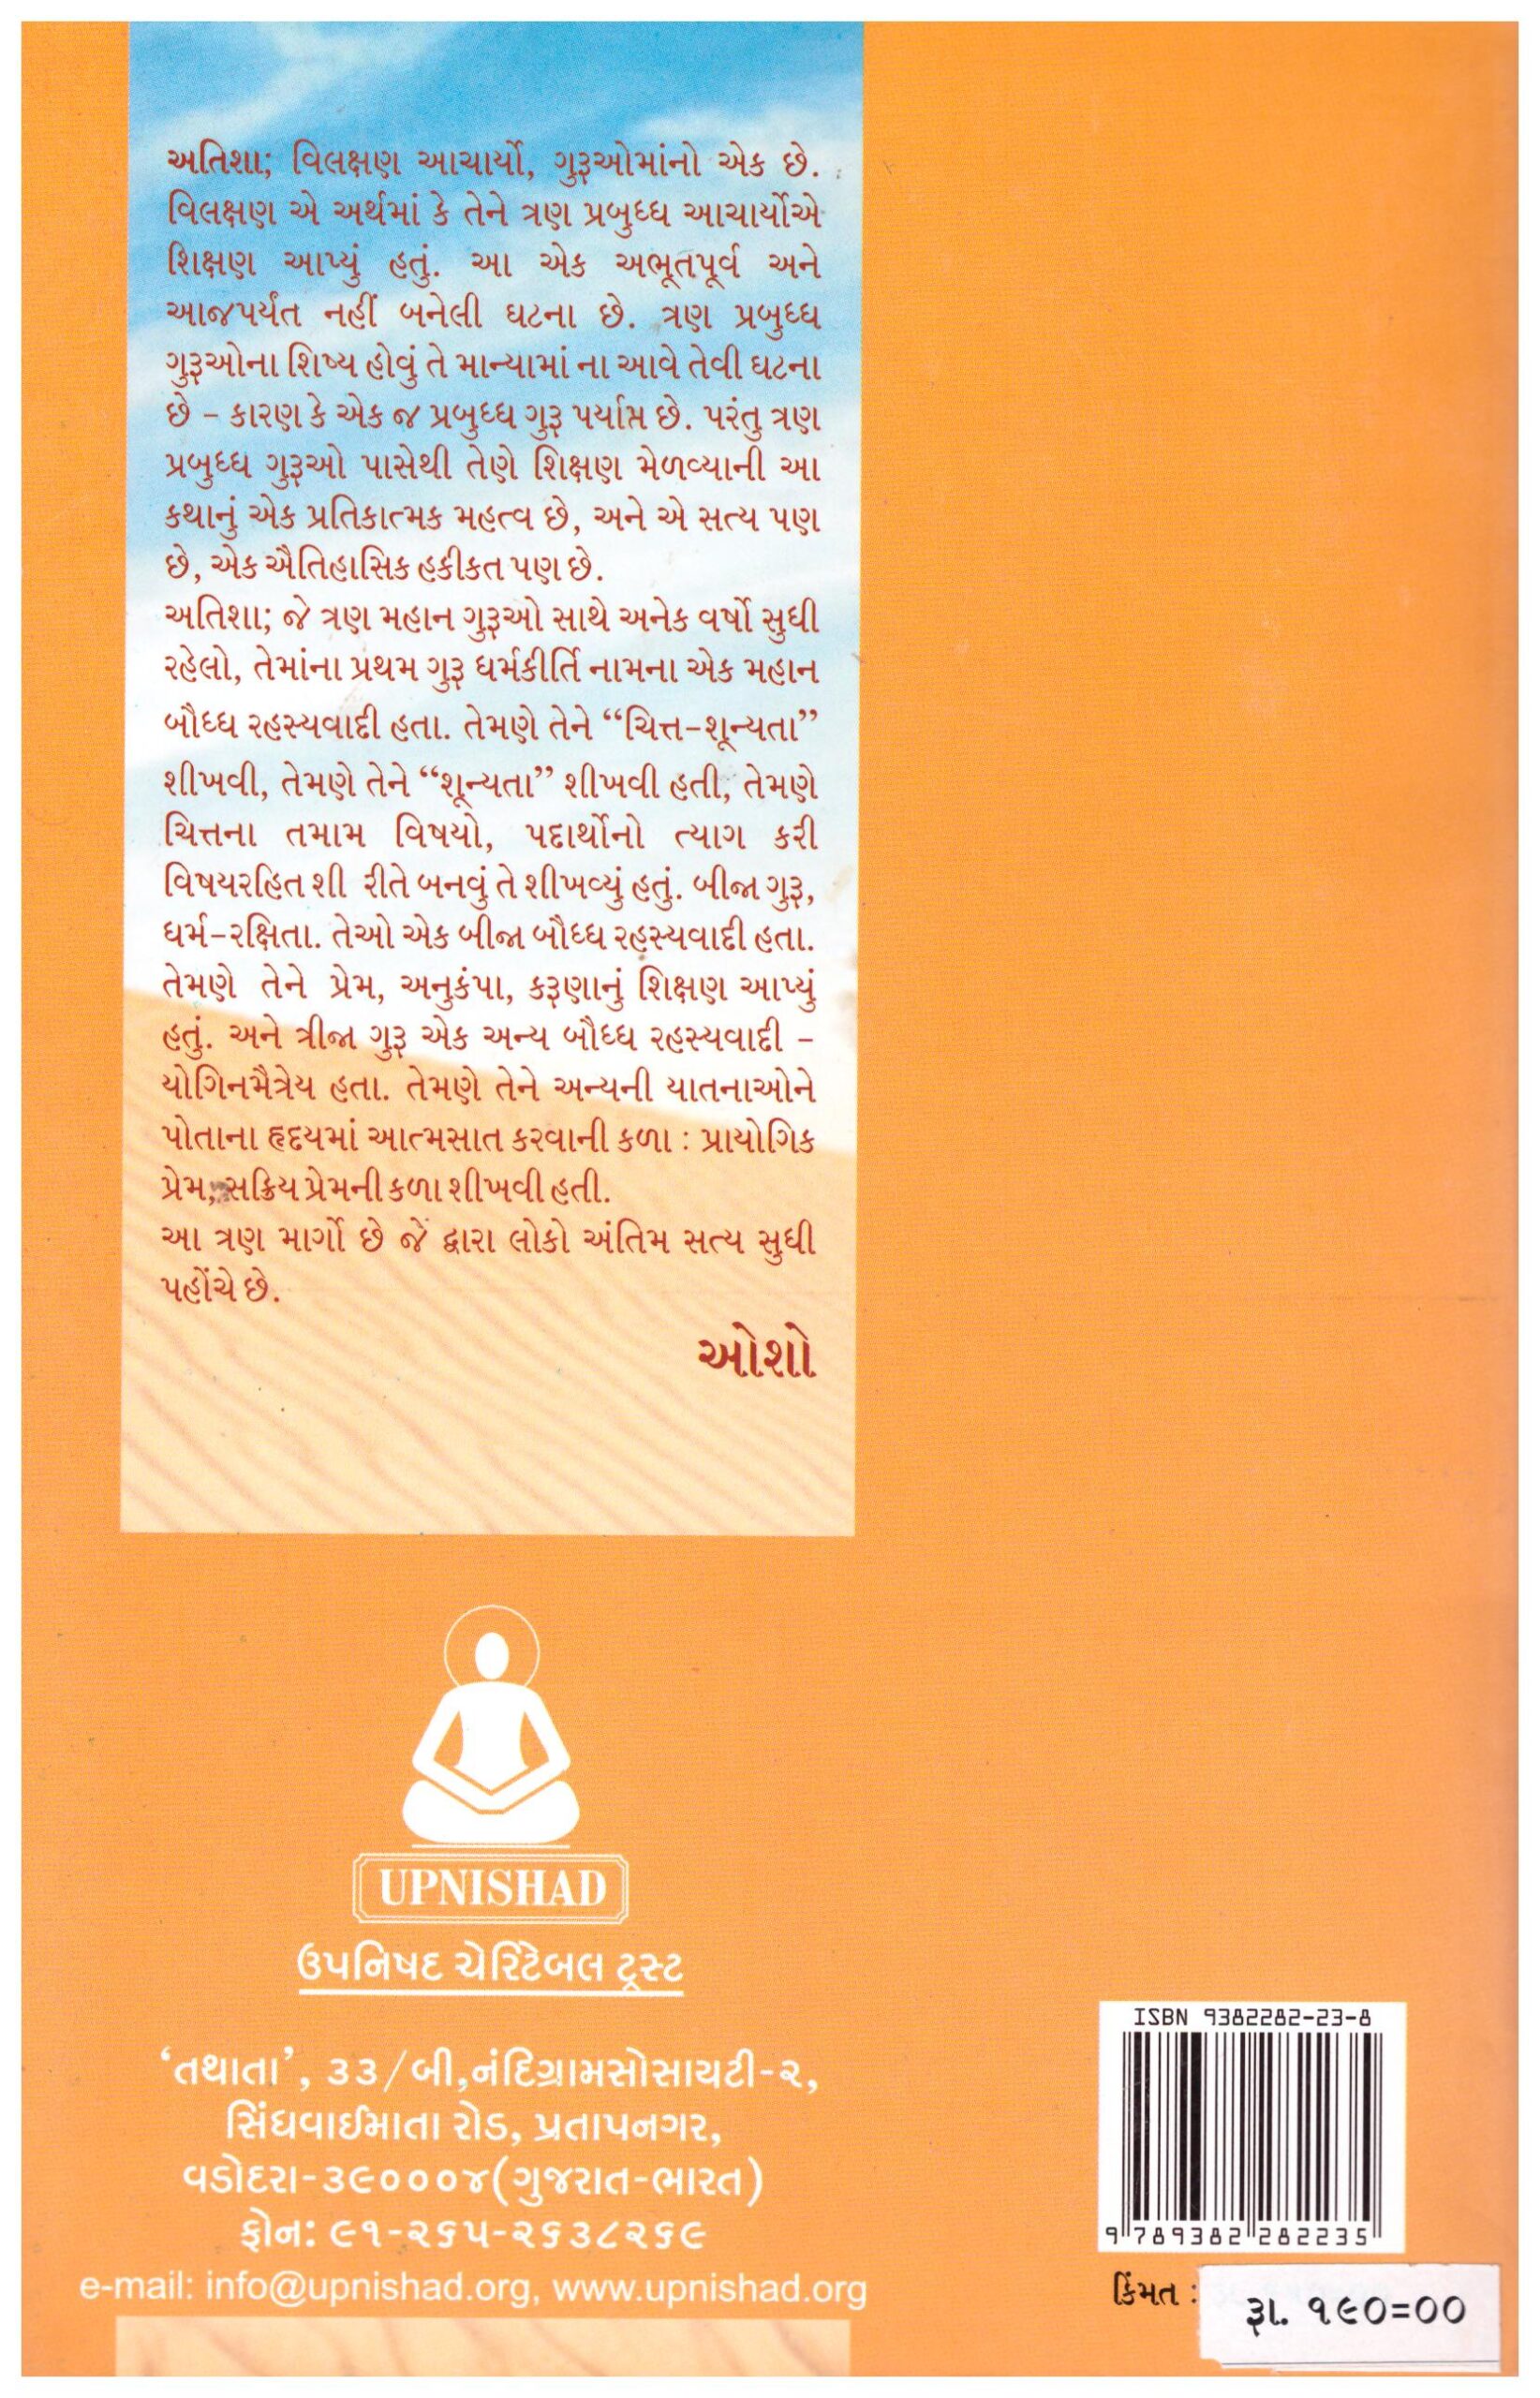 અતિશા; વિલક્ષણ આચાર્યો, ગુરૂઓમાંનો એક છે.
વિલક્ષણ એ અર્થમાં કે તેને ત્રણ પ્રબુધ્ધ આચાર્યોએ
શિક્ષણ આપ્યું હતું. આ એક અભૂતપૂર્વ અને
આજપર્યંત નહીં બનેલી ઘટના છે. ત્રણ પ્રબુધ્ધ
ગુરૂઓના શિષ્ય હોવું તે માન્યામાં ના આવે તેવી ઘટના
છે – કારણ કે એક જ પ્રબુધ્ધ ગુરૂ પર્યાપ્ત છે. પરંતુ ત્રણ
પ્રબુધ્ધ ગુરૂઓ પાસેથી તેણે શિક્ષણ મેળવ્યાની આ
કથાનું એક પ્રતિકાત્મક મહત્વ છે, અને એ સત્ય પણ
છે, એક ઐતિહાસિક હકીકત પણ છે.
અતિશા; જે ત્રણ મહાન ગુરૂઓ સાથે અનેક વર્ષો સુધી
રહેલો, તેમાંના પ્રથમ ગુરૂ ધર્મકીર્તિ નામના એક મહાન
બૌધ્ધ રહસ્યવાદી હતા. તેમણે તેને “ચિત્ત-શૂન્યતા”
શીખવી, તેમણે તેને “શૂન્યતા” શીખવી હતી, તેમણે
ચિત્તના તમામ વિષયો, પદાર્થોનો ત્યાગ કરી
વિષયરહિત શી રીતે બનવું તે શીખવ્યું હતું. બીજા ગુરૂ,
ધર્મ-રક્ષિતા. તેઓ એક બીજા બૌધ્ધ રહસ્યવાદી હતા.
તેમણે તેને પ્રેમ, અનુકંપા, કરૂણાનું શિક્ષણ આપ્યું
હતું. અને ત્રીજા ગુરૂ એક અન્ય બૌધ્ધ રહસ્યવાદી –
યોગિનમૈત્રેય હતા. તેમણે તેને અન્યની યાતનાઓને
પોતાના હૃદયમાં આત્મસાત કરવાની કળા : પ્રાયોગિક
પ્રેમ, સક્રિય પ્રેમની કળા શીખવી હતી.
આ ત્રણ માર્ગો છે જે દ્વારા લોકો અંતિમ સત્ય સુધી
પહોંચે છે.
ઓશો
UPNISHAD
ઉપનિષદ ચેરિટેબલ ટ્રસ્ટ
‘તથાતા’, ૩૩/બી,નંદિગ્રામસોસાયટી-૨,
સિંધવાઈમાતા રોડ, પ્રતાપનગર,
વડોદરા-૩૯૦૦૦૪(ગુજરાત-ભારત)
ફોન: ૯૧-૨૬૫-૨૬૩૮૨૬૯
e-mail: info@upnishad.org, www.upnishad.org
ISBN 9382282-23-8
9 789382 282235
કિંમત :
રૂા. ૧૯૦=૦૦